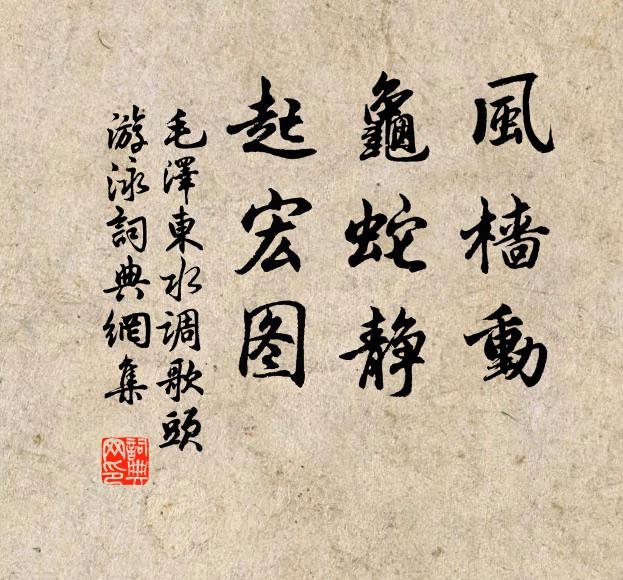 風檣動
龜蛇静
起宏图
毛澤東水调歌頭
游泳詞典網集
詞典网印